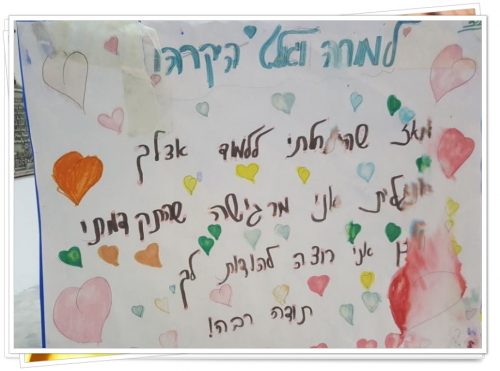 למורה ויאלט היקרה!
מאז שהתחלתי ללמוד אצלך
אנגלית אני מרגישה שהתקדמתי
אני רוצה להודות לך
תודה רבה!